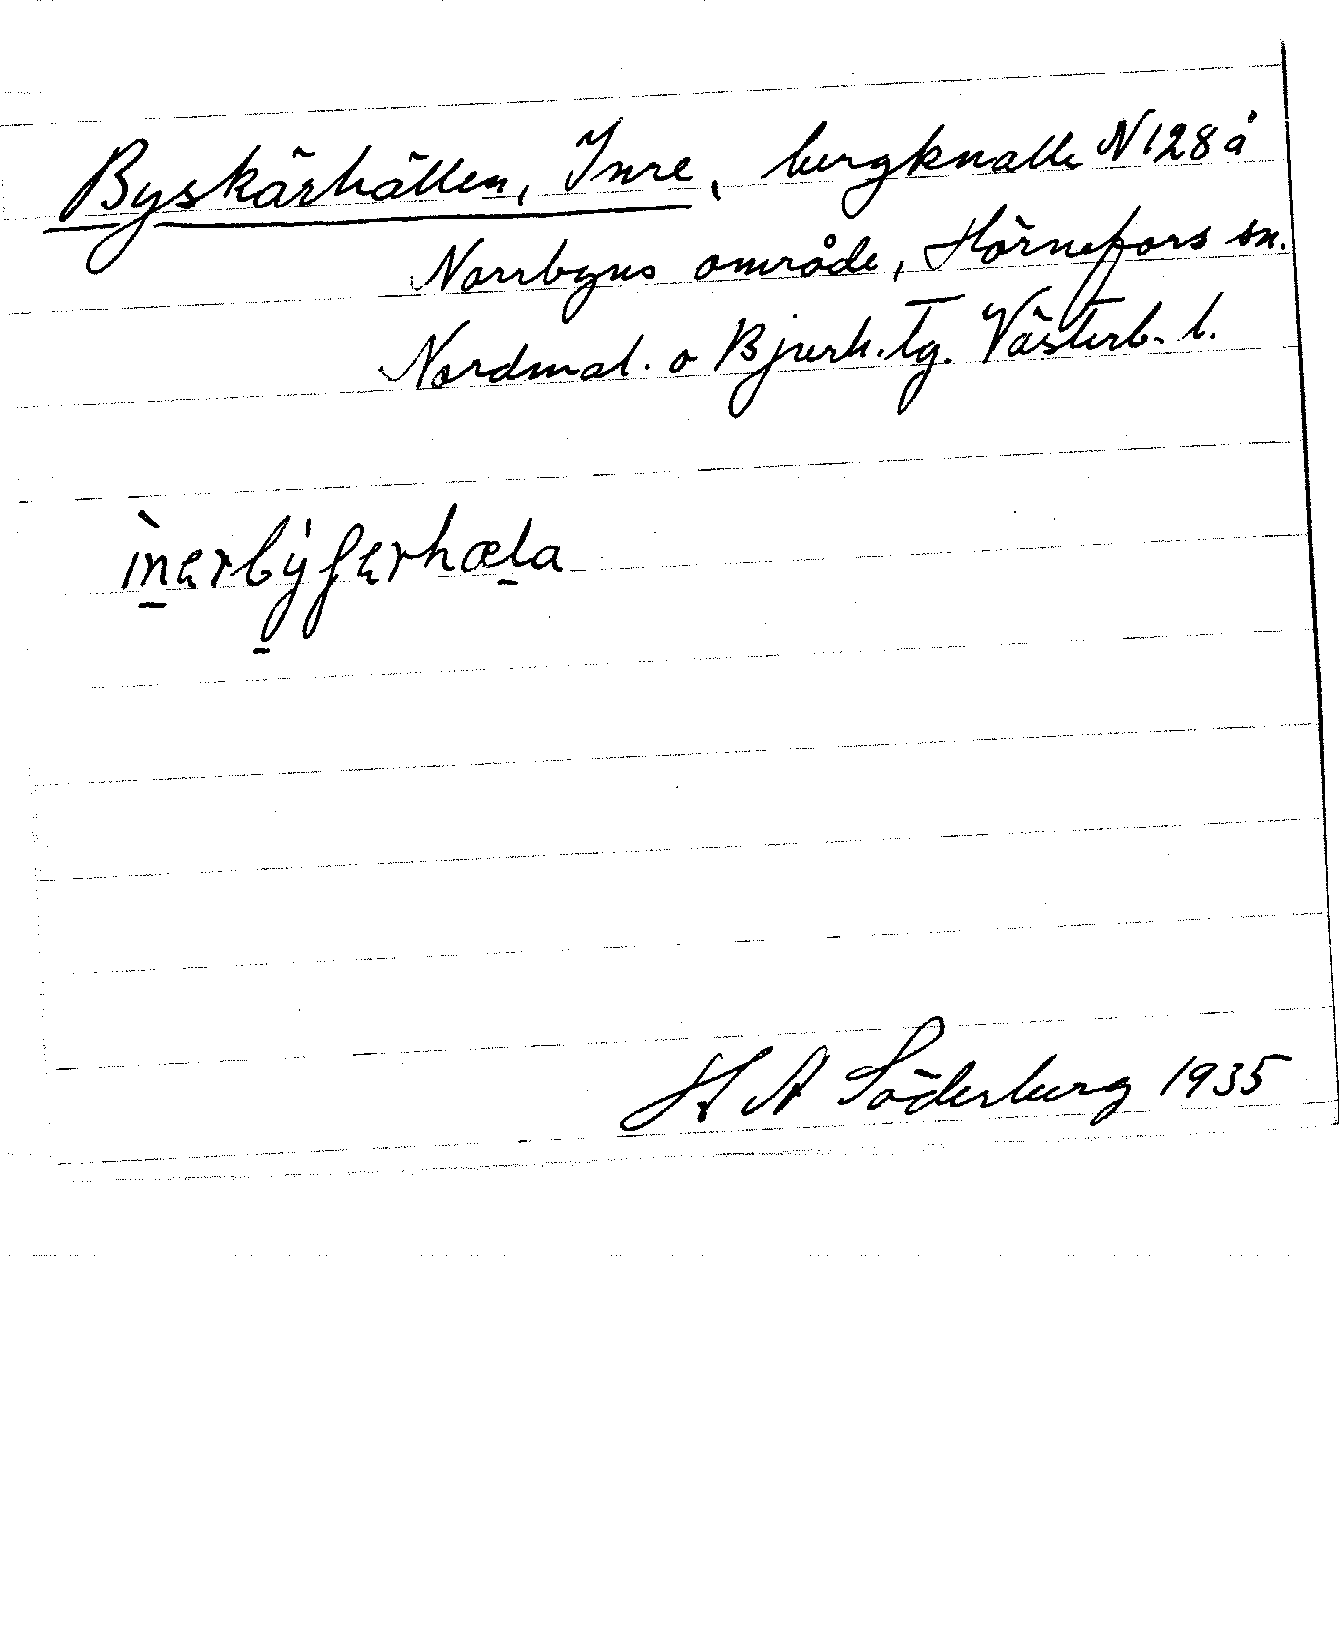 Byskärhällen, Inre, bergknalle N 128 å
Norrbyns område, Hörnefors sn.
Nordmal. o Bjurh. tg. Västerb. l.
ìnerbýʃerhæla
H A Söderberg 1935